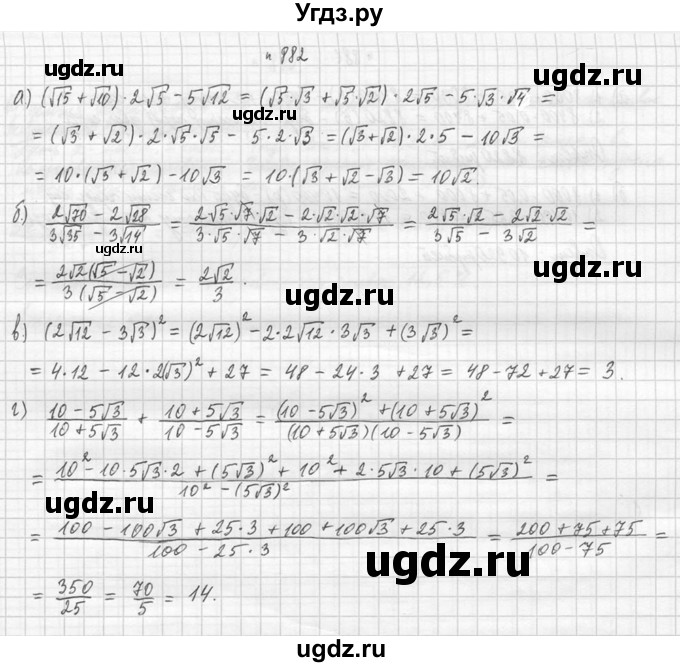 Угдз.ру
n 982
ugdz.ru ugdz.ru
а) (√15 + √10) · 2√5 − 5√12 = (√5·√3 + √5·√2) · 2√5 − 5·√3·√4 =
= (√3 + √2) · 2·√5·√5 − 5·2·√3 = (√3+√2)·2·5 − 10√3 =
ugdz.ru
= 10·(√3 + √2) − 10√3 = 10·(√3 + √2 − √3) = 10√2.
ugdz.ru
б) (2√70 − 2√28)/(3√35 − 3√14) = (2√5·√7·√2 − 2·√2·√2·√7)/(3·√5·√7 − 3·√2·√7) = (2√5·√2 − 2√2·√2)/(3√5 − 3√2) =
ugdz.ru
= 2√2(√5 − √2)/3(√5 − √2) = 2√2/3.
ugdz.ru
в) (2√12 − 3√3)² = (2√12)² − 2·2√12·3√3 + (3√3)² =
ugdz.ru
= 4·12 − 12·2(√3)² + 27 = 48 − 24·3 + 27 = 48 − 72 + 27 = 3.
ugdz.ru
г) (10 − 5√3)/(10 + 5√3) + (10 + 5√3)/(10 − 5√3) = ((10 − 5√3)² + (10 + 5√3)²)/((10 + 5√3)(10 − 5√3)) =
ugdz.ru
= (10² − 10·5√3·2 + (5√3)² + 10² + 2·5√3·10 + (5√3)²)/(10² − (5√3)²) =
ugdz.ru
= (100 − 100√3 + 25·3 + 100 + 100√3 + 25·3)/(100 − 25·3) = (200 + 75 + 75)/(100 − 75) =
ugdz.ru
= 350/25 = 70/5 = 14.
ugdz.ru
ugdz.ru